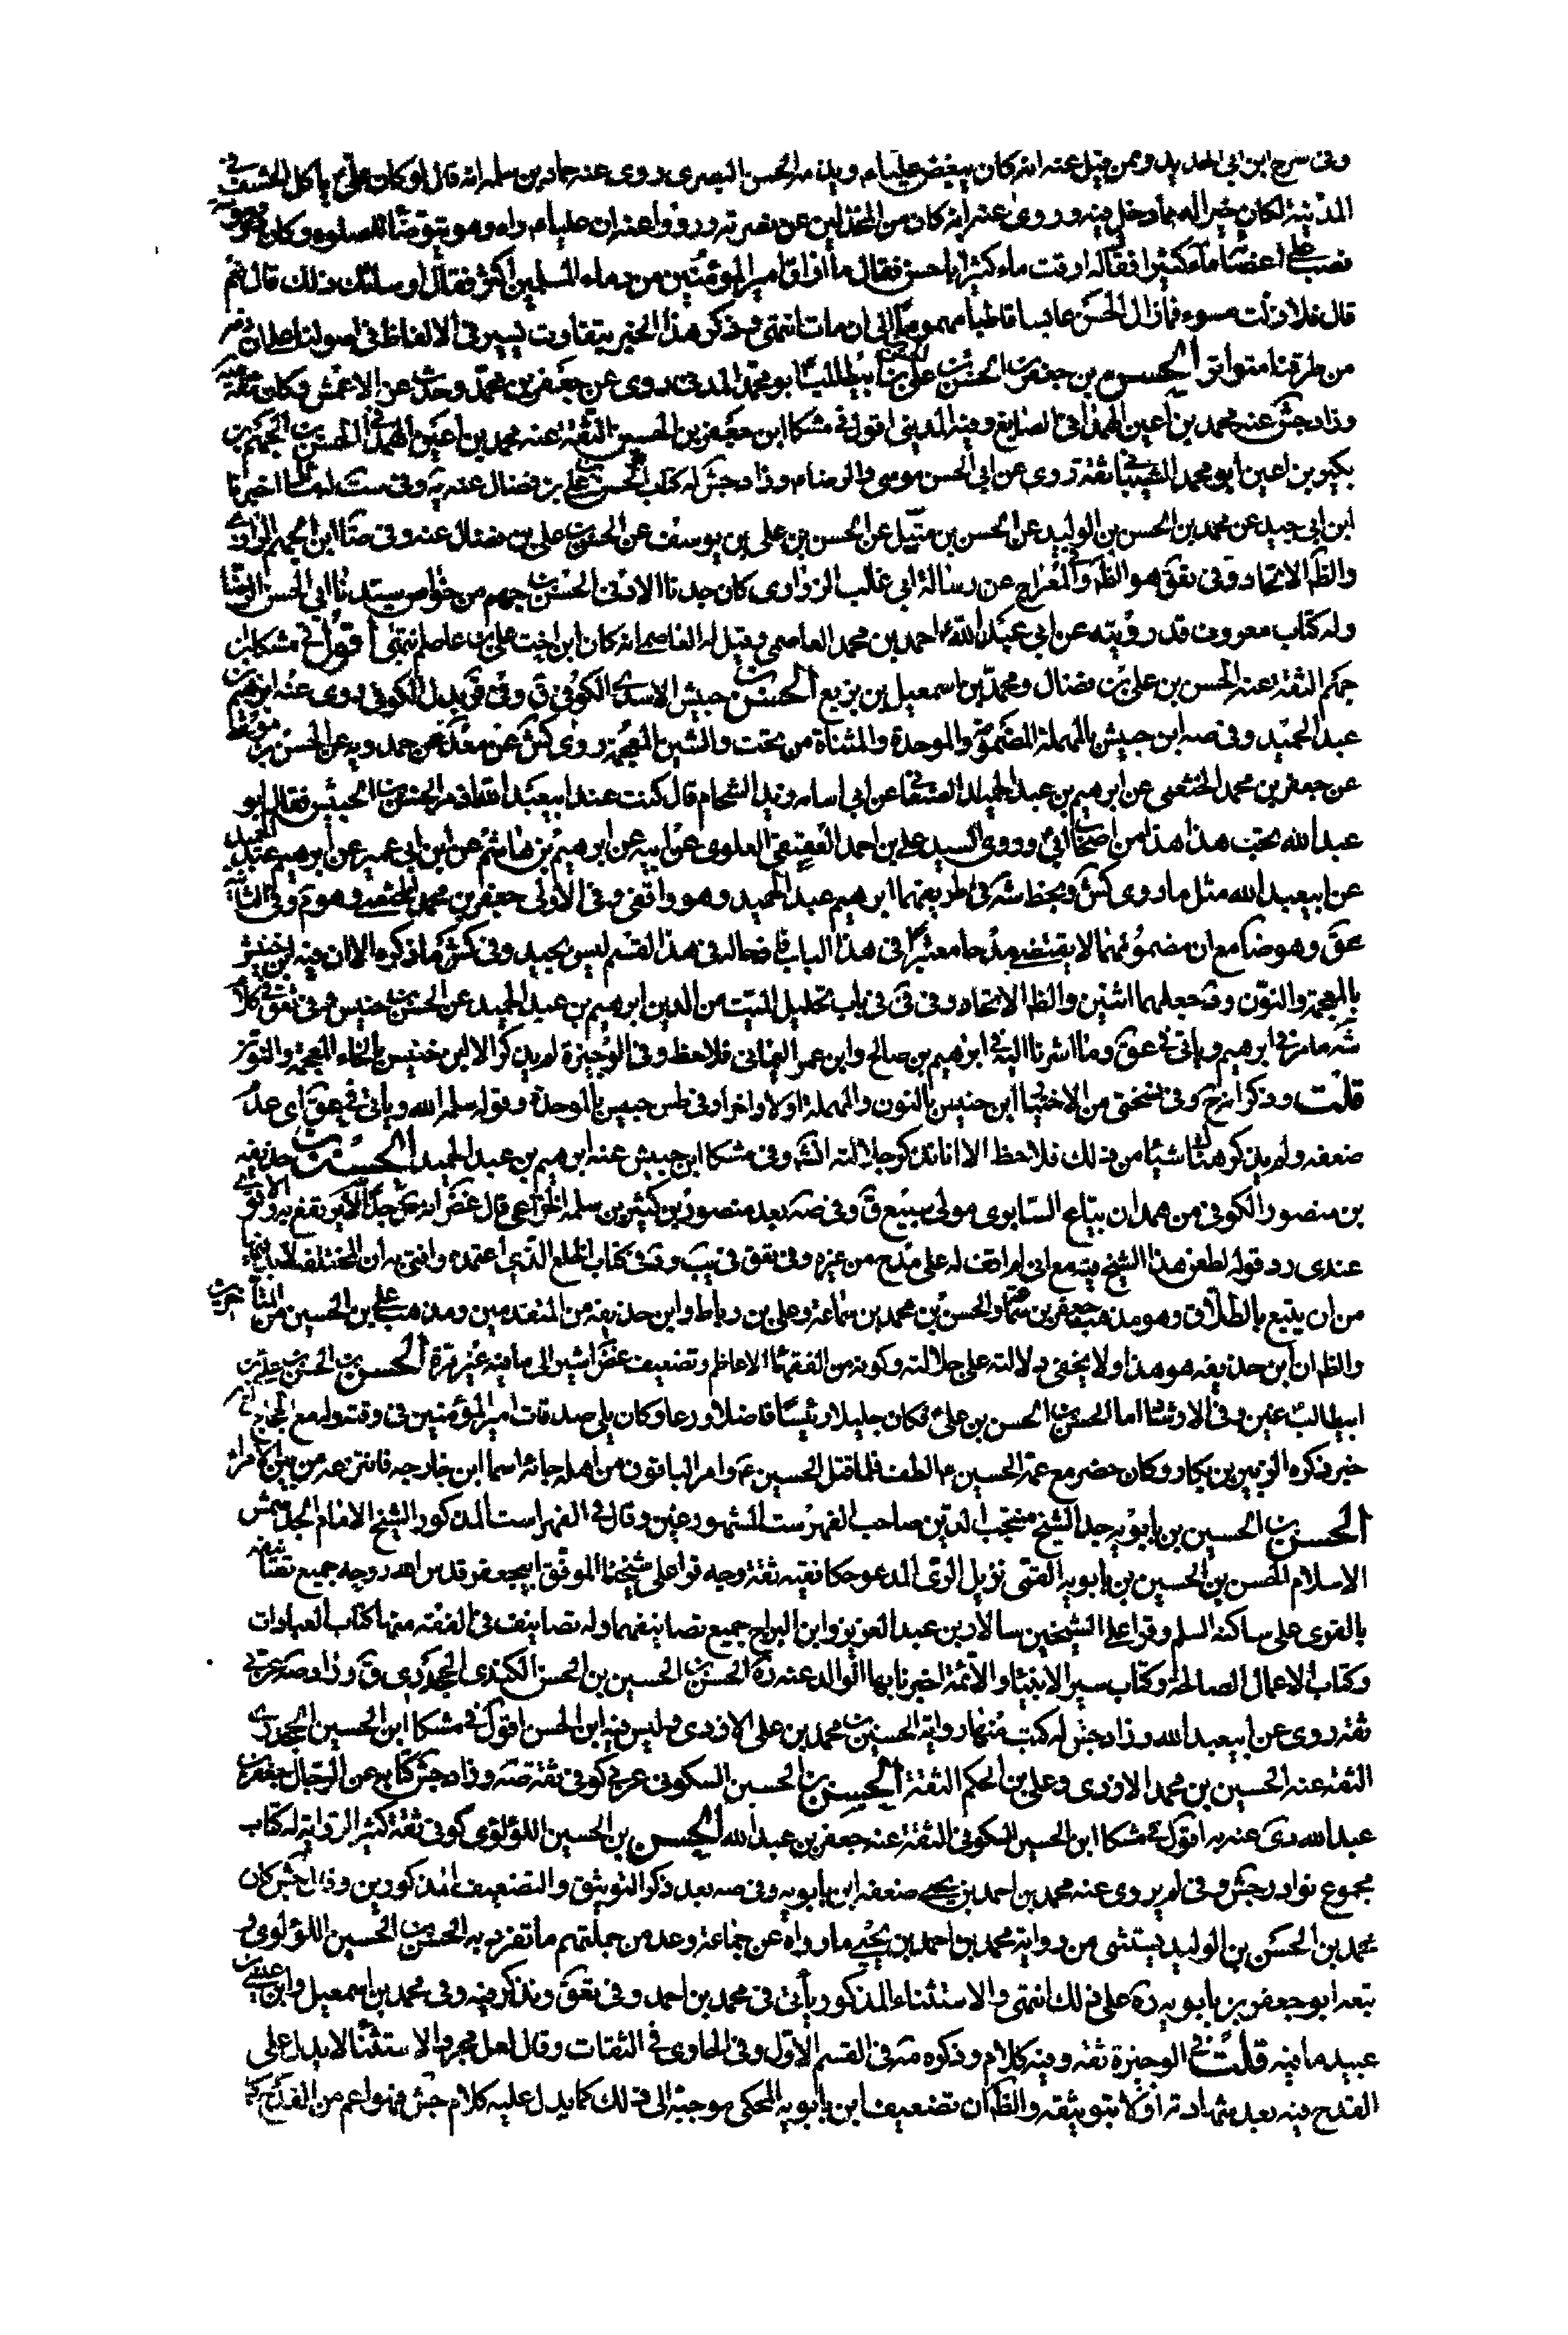 وفى شرح ابن ابى الحديد وممن قيل عنه انه كان يبغض عليا م ويذمه الحسن البصرى روى عنه حماد بن سلمه انه قال لو كان على ع ياكل الحشف فى
المدينة لكان خيرا له مما دخل فيه وروى عنه انه كان من المخذلين عن نصرته ورووا عنه ان عليا م راه وهو يتوضأ للصلوه وكان ذو وسوسة
فصب على اعضائه ماء كثيرا فقال له ارقت ماء كثيرا يا حسن فقال ما اراق امير المؤمنين من دماء المسلمين اكثر فقال اوساءك ذلك قال نعم
قال فلا زلت مسوء فما زال الحسن عابسا قاطبا مهموما الى ان مات انتهى وذكر هذا الخبر بتفاوت يسير فى الالفاظ فى اصولنا
من طرقنا متواتر الحسن بن جعفر بن الحسن بن على بن ابيطالب ابو محمد المدنى روى عن جعفر بن محمد وحدث عن الاعمش وكان ثقة
وزاد جش عنه محمد بن اعين الهمدانى الصايغ وفيه المدينى اقول فى مشكا ابن جعفر بن الحسن الثقة عنه محمد بن اعين الهمدانى الحسن بن الجهم بن
بكير بن اعين ابو محمد الشيبانى ثقة روى عن ابى الحسن موسى والرضا م وزاد جش له كتاب الحسن بن على بن فضال عنه به وفى ست له مسائل اخبرنا
ابن ابى جيد عن محمد بن الحسن بن الوليد عن الحسن بن متيل عن الحسن بن على بن يوسف عن الحسن بن على بن فضال عنه وفى ضا ابن الجهم الرازى
والظ الاتحاد وفى تعق هو الظ وفى المعراج عن رسالة ابى غالب الزرارى كان جدنا الادنى الحسن بن جهم من خواص سيدنا ابى الحسن الرضا
وله كتاب معروف قد رويته عن ابى عبد الله احمد بن محمد العاصمى وقيل له العاصمى انه كان ابن اخت على بن عاصم انتهى اقول فى مشكا ابن
جهم الثقة عنه الحسن بن على بن فضال ومحمد بن اسمعيل بن بزيع الحسن بن حبيش الاسدى الكوفى ق وفى قر بدل الكوفى روى عنه ابرهيم بن
عبد الحميد وفى صه ابن حبيش بالمهملة المضمومة والموحدة والمثناة من تحت والشين المعجمة روى كش عن محمد عن حمدويه عن الحسن بن موسى
عن جعفر بن محمد الخثعمى عن ابرهيم بن عبد الحميد الصنعانى عن ابى اسامه زيد الشحام قال كنت عند ابيعبد الله اذ مر الحسن بن الحبيش فقال ابو
عبد الله تحب هذا هذا من اصحاب ابى وروى السيد على بن احمد العقيقى العلوى عن ابيه عن ابرهيم بن هاشم عن ابن ابى عمير عن ابرهيم بن عبد الحميد
عن ابيعبد الله مثل ما روى كش وبخط شه فى طريقهما ابرهيم عبد الحميد وهو واقفى وفى الاولى جعفر بن محمد الخثعمى وهو م وفى الثانية
عق وهو ضا مع ان مضمونهما لا يقتضى مدحا معتبرا فى هذا الباب فادخاله فى هذا القسم ليس بجيد وفى كش ما ذكره الا ان فيه ابن خنيس
بالمعجمة والنون وقد جعلهما اثنين والظ الاتحاد وفى فى فى باب تحليل الميت من الدين ابرهيم بن عبد الحميد عن الحسن بن خنيس وفى تعق فى كلام
شه ما مر فى ابرهيم وياتى فى عق وما اشرنا اليه فى ابرهيم بن صالح وابن عمر اليمانى فلاحظ وفى الوجيزة لم يذكر الا ابن خنيس بالخاء المعجمة والنون
قلت وذكر انه ح وفى نسختى من الاختيار ابن حنيس بالنون والمهملة اولا واخرا وفى طس حبيس بالموحدة وقوله سلمه الله وياتى فى عق اى عدم
ضعفه ولم يذكر هناك شيئا من ذلك فلاحظ الا انا نذكر جلالته اله وفى مشكا ابن حبيش عنه ابرهيم بن عبد الحميد الحسن بن حذيفه
بن منصور الكوفى من همدان بياع السابرى مولى سبيع ق وفى صه بعد منصور بن كثير بن سلمه الخزاعى قال غض انه ضعيف جدا لا يرتفع به والاقوى
عندى رد قوله لطعن هذا الشيخ فيه مع انى لم اقف له على مدح من غيره وفى تعق فى يب وفى كتاب الخلع الذى اعتمده وافتى به ان المختلعة لابد فيها
من ان يتبع بالطلاق وهو مذهب جعفر بن سماعه والحسن بن محمد بن سماعة وعلى بن رباط وابن حذيفه من المتقدمين ومذهب على بن الحسين من المتأخرين
والظ ان ابن حذيفه هو هذا ولا يخفى دلالته على جلالته وكونه من الفقهاء الاعاظم وتضعيف غض اشير الى ما فيه غير مرة الحسن بن الحسن بن على بن
ابيطالب عين وفى الارشاد اما الحسن بن الحسن بن على ع فكان جليلا رئيسا فاضلا ورعا وكان يلى صدقات امير المؤمنين فى وقته وله مع الحجاج
خبر ذكره الزبير بن بكار وكان حضر مع عمه الحسين ع الطف فلما قتل الحسين ع واسر الباقون من اهله جائه اسما ابن خارجه فانتزعه من بين الاسرى
الحسن بن الحسين بن بابويه جد الشيخ منتجب الدين صاحب الفهرست المشهور عين وقال فى الفهراست المذكور الشيخ الامام الجد شمس
الاسلام الحسن بن الحسين بن بابويه القمى نزيل الرى المدعو حكا فقيه ثقة وجه قرا على شيخنا الموفق ابيجعفر قدس الله روحه جميع تصانيفه
بالغرى على ساكنه السلم وقرا على الشيخين سالار بن عبد العزيز وابن البراج جميع تصانيفهما وله تصانيف فى الفقه منها كتاب العبادات
وكتاب الاعمال الصالحة وكتاب سير الانبياء والائمة اخبرنا بها الوالد عنه ره الحسن بن الحسين بن الحسن الكندى الجحدرى ق وزاد صه عربى
ثقه روى عن ابيعبد الله وزاد جش له كتب منها رواية الحسين بن محمد بن على الازدى وليس فيه ابن الحسن اقول فى مشكا ابن الحسين الجحدرى
الثقة عنه الحسين بن محمد الازدى وعلى بن الحكم الثقة الحسن بن الحسين السكونى عربى كوفى ثقة صه وزاد جش كتابه عن الرجال جعفر بن
عبد الله دى عنه به اقول فى مشكا ابن الحسين السكونى الثقة عنه جعفر بن عبد الله الحسن بن الحسين اللؤلؤى كوفى ثقة كثير الرواية له كتاب
مجموع نوادر جش وفى لم يروى عنه محمد بن احمد بن يحيى ضعفه ابن بابويه وفى صه بعد ذكر التوثيق والتضعيف المذكورين وقال جش كان
محمد بن الحسن بن الوليد يستثنى من رواية محمد بن احمد بن يحيى ما رواه عن جماعة وعد من جملتهم ما تفرد به الحسن بن الحسين اللؤلوى و
تبعه ابو جعفر بن بابويه ره على ذلك انتهى والاستثناء المذكور يأتى فى محمد بن احمد وفى تعق ونذكر فيه وفى محمد بن اسمعيل وابن عيسى بن
عبيد ما فيه قلت فى الوجيزة ثقه وفيه كلام وذكره مه فى القسم الاول وفى الحاوى فى الثقات وقال لعل مجرد الاستثناء لا يدل على
القدح فيه بعد شهادته اولا بتوثيقه والظ ان تضعيف ابن بابويه المحكى موجبة الى ذلك كما يدل عليه كلام جش وهو اعم من القدح كما